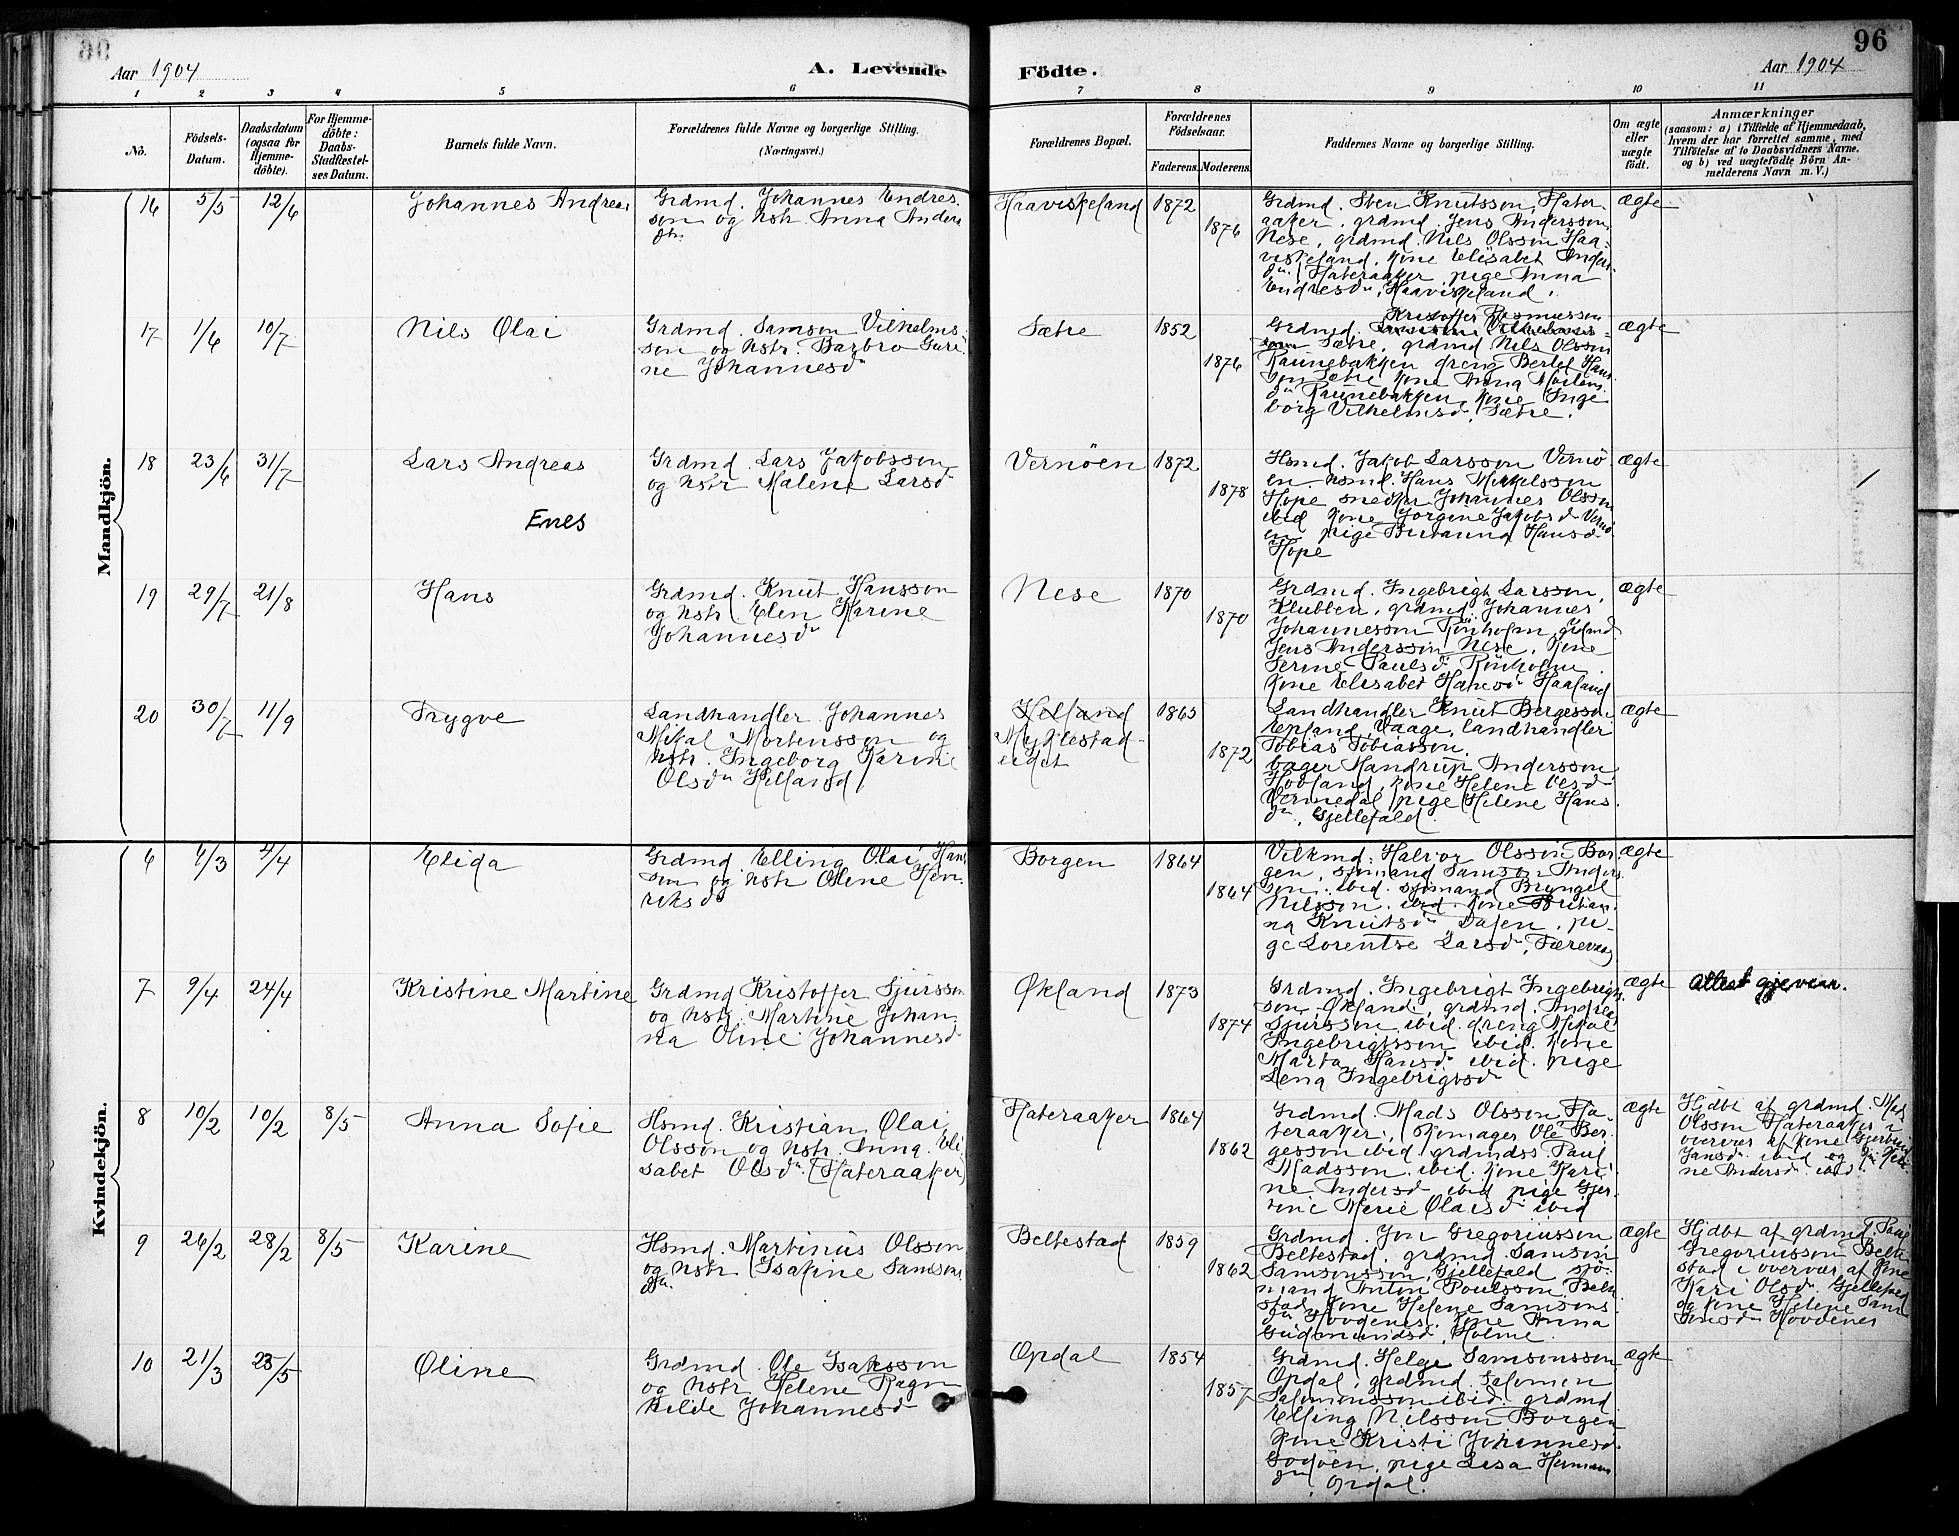 96
Aar 1904
A. Levende Födte.
Aar 1904
1 2 3 4 5 6 7 8 9 10 11
No.
Födsels-
Datum.
Daabsdatum
(ogsaa for
Hjemme-
döbte).
For Hjemme-
döbte:
Daabs-
Stadfæstel-
ses Datum.
Barnets fulde Navn.
Forældrenes fulde Navne og borgerlige Stilling.
(Næringsvei.)
Forældrenes Bopæl.
Forældrenes
Födselsaar.
Faderens. Moderens.
Faddernes Navne og borgerlige Stilling.
Om ægte
eller
uægte
födt.
Anmærkninger
(saasom: a) i Tilfælde af Hjemmedaab,
hvem der har forrettet samme, med
Tilföielse af to Daabsvidners Navne,
og b) ved uægtefödte Börn An-
melderens Navn m. V.)
Mandkjön.
16 5/5 12/6 Johannes Andreas
Grdmd. Johannes Endres-
son og hstr. Anna Anders
dtr.
Haaviskeland 1872 1876
Grdmd. Sten Knutsson, Hater-
aaker, grdmd. Jens Andersson
Nese, grdmd. Nils Olsson Haa-
viskeland, kone Elisabet Anders-
dtr. Hateraaker, pige Anna
Endresdtr., Haaviskeland.
ægte
17 1/6 10/7 Nils Olai
Grdmd. Samson Vilhelms-
son og hstr. Barbro Guri-
ne Johannesdtr
Sætre 1852 1876
Kristoffer Rasmusson
Grdmd. Samson Vilhelms-
son Sætre, grdmd Nils Olsson
Raunebakken dreng Bertel Hans-
son Sætre kone Anna Mortens-
dtr Raunebakken, kone Inge
borg Vilhelmsd. Sætre.
ægte
18 23/6 31/7 Lars Andreas
Enes
Grdmd. Lars Jakobsson
og hstr Malene Larsd
Vernöen 1872 1878
Hsmd. Jakob Larsson Vernö
en. hsmd. Hans Mikkelsson
Hope snedker Johannes Olsson
ibid kone Jorgine Jakobsd Vernö
en pige Britanna Hansd.
Hope
ægte
19 29/7 21/8 Hans
Grdmd. Knut Hansson
og hstr Elen Karine
Johannesdtr
Nese 1870 1870
Grdmd. Ingebrigt Larsson,
Klubben, grdmd. Johannes
Johannesson Rönholm, grdmd
Jens Andersson Nese, kone
Serine Paulsd Rönholm
kone Elisabet Hansdtr Haaland
ægte
20 30/7 11/9 Trygve
Landhandler Johannes
Mikal Mortensson og
hstr. Ingeborg Karine
Olsdtr Helland
Helland
Myklestad-
eidet
1865 1872
Landhandler Knut Bergesson
Epland, Vaage, landhandler
Tobias Tobiasson,
bager Mandrup Andersson
Hovland, kone Helene Olsd
Vermedal, pige Helene Hans
dtr, Gjellefald.
ægte
Kvindekjön.
6 6/3 4/4 Elida
Grdmd. Elling Olai Han-
son og hstr Oline Hen-
riksd
Borgen 1864 1864
Vilkmd. Halvor Olsson Bor-
gen, sjömand Samson Anders-
son. ibid. sjömand Bryngel
Nilsson. ibid. kone Britian-
na Knutsdtr Dalen, pi-
ge Lorentse Larsd, Færevaag
ægte
7 9/4 24/4 Kristine Martine
Grdmd Kristoffer Sjursson
og hstr. Martine Johan-
na Oline Johannesd
Økland 1873 1874
Grdmd. Ingebrigt Ingebrigts-
son, Økland, grdmd. Andreas
Sjursson ibid. dreng Mikal
Ingebrigtsson ibid. kone
Marta Hansdtr ibid. pige
Lena Ingebrigtsd
ægte
8 10/2 10/2 8/5 Anna Sofie
Hsmd. Kristian Olai
Olsson og hstr. Anna Eli-
sabet Olsdtr. (Hateraaker)
Hateraaker 1864 1862
Grdmd. Mads Olsson Ha-
teraaker, skomager Ole Ber-
gesson ibid. grdmdss. Paul
Madsson. ibid. kone Kari-
ne Andersd ibid pige Gjer-
tine Merie Olaisd ibid
ægte
Hjdbt af grdmd. Mads
Olsson Hateraaker i
overvær af kone Gjertrud
Jansd. ibid og kone Kari-
ne Andersd. ibid.
9 26/2 28/2 8/5 Karine
Hsmd. Martinus Olsson
og hstr Isakine Samsons
dtr.
Beltestad 1859 1862
Grdmd. Jon Gregoriusson
Beltestad, grdmd. Samson
Samsonsson, Gjellefald sjö-
mand Anton Poulsson Belte-
stad, kone Helene Samsons
dtr Hovdenes. kone Anna
Gudmundsd, Holme.
ægte
Hjdbt af grdmd Paul
Gregoriusson Belte-
stad i overvær af kone
Kari Olsdtr. Gjellefald
og kone Helene Sam-
sonsd Hovdenes
10 21/3 23/5 Oline
Grdmd. Ole Isaksson
og hstr Helene Ragn-
hilde Johannesd
Opdal 1854 1857
Grdmd. Helge Samsonsson
Opdal, grdmd. Salomon
Salomonsson ibid. grdmd
Elling Nilsson Borgen
kone Kristi Johannesd.
Godöen, pige Lisa Hermans
dtr, Opdal.
ægte